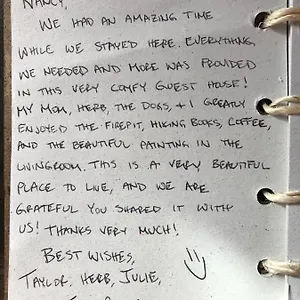 NANCY,
WE HAD AN AMAZING TIME
WHILE WE STAYED HERE. EVERYTHING
WE NEEDED AND MORE WAS PROVIDED
IN THIS VERY COMFY GUEST HOUSE!
MY MOM, HERB, THE DOGS, + I GREATLY
ENJOYED THE FIREPIT, HIKING BOOKS, COFFEE,
AND THE BEAUTIFUL PAINTING IN THE
LIVINGROOM. THIS IS A VERY BEAUTIFUL
PLACE TO LIVE, AND WE ARE
GRATEFUL YOU SHARED IT WITH
US! THANKS VERY MUCH!
BEST WISHES,
TAYLOR, HERB, JULIE,